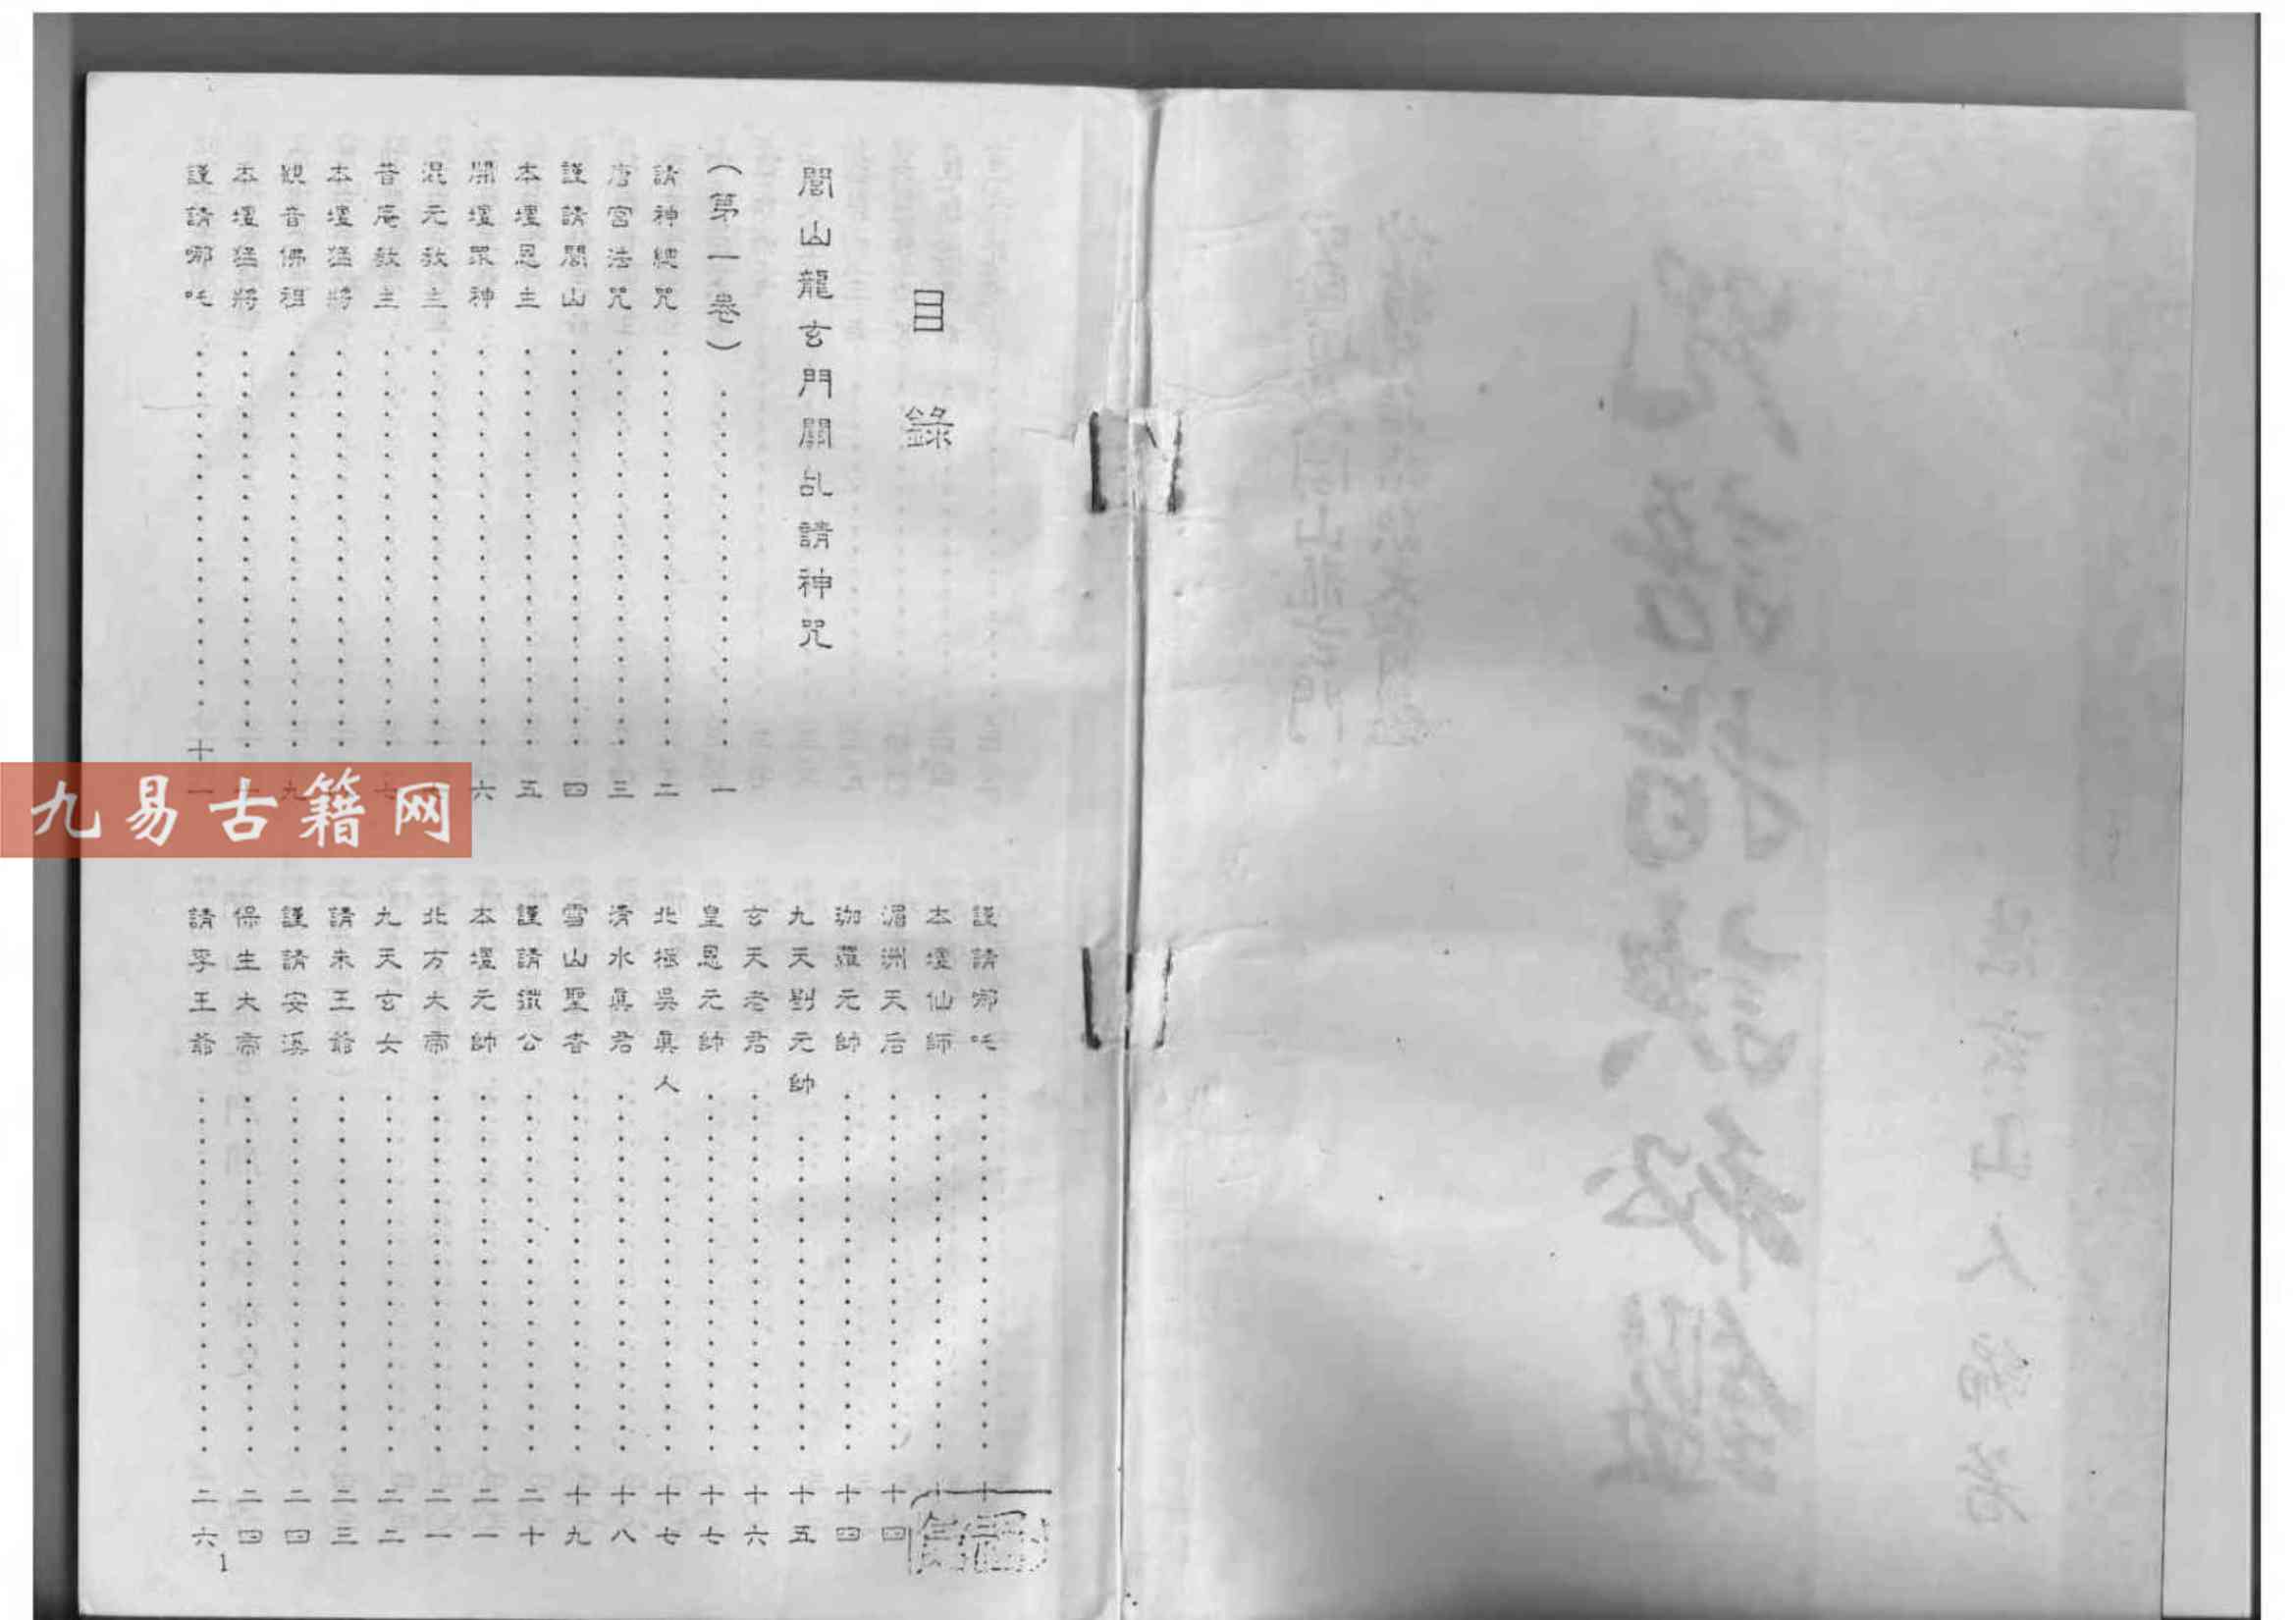 目錄
閭山龍玄門關乩請神咒
(第一卷)一
請神總咒二
唐宮法咒三
謹請閭山四
本壇恩主五
開壇眾神六
混元教主
昔庵教主七
本壇猛將
觀音佛祖九
本壇猛將
謹請哪吒十一
謹請哪吒
本壇仙師
湄洲天后十四
珈羅元帥十四
九天劉元帥十五
玄天老君十六
皇恩元帥十七
北極吳真人十七
清水真君十八
雪山聖者十九
謹請濟公二十
本壇元帥二一
北方大帝二一
九天玄女二二
請朱王爺二三
謹請安溪二四
保生大帝二四
請李王爺二六
1
九易古籍网